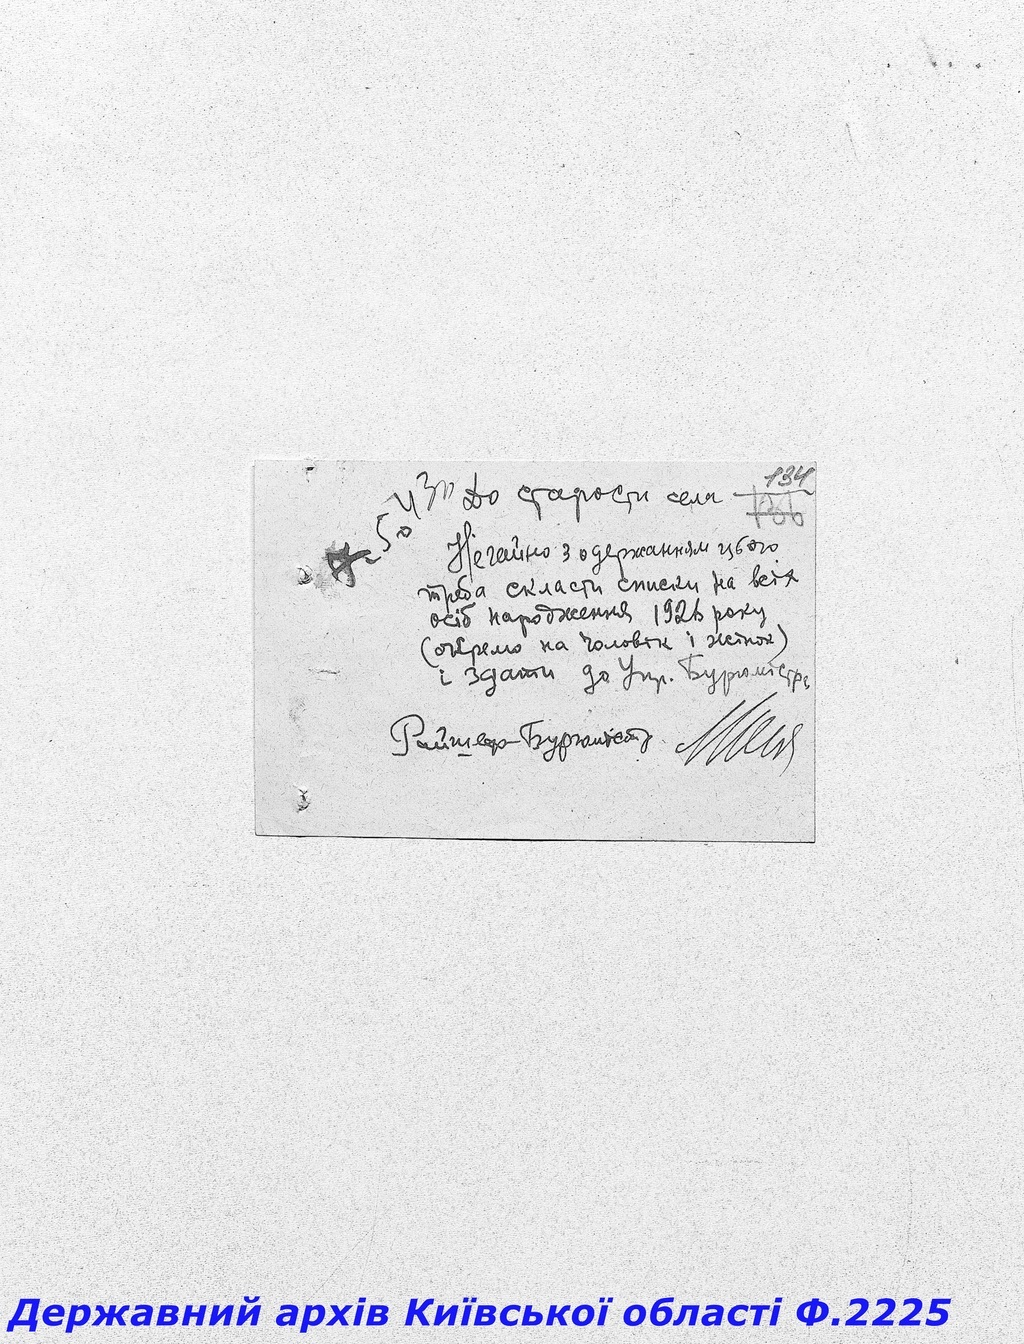 134
До старости села
Негайно з одержанням цього
треба скласти списки на всіх
осіб народження 1926 року
(окремо на чоловік і жінок)
і здати до Упр. Бургомістра
Райшеф-Бургомістр
Державний архів Київської області Ф.2225